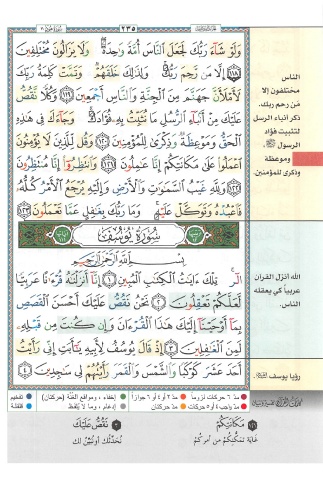 ٢٣٥
وَلَوْ شَاءَ رَبُّكَ لَجَعَلَ النَّاسَ أُمَّةً وَاحِدَةً وَلَا يَزَالُونَ مُخْتَلِفِينَ
﴿١١٨﴾ إِلَّا مَن رَّحِمَ رَبُّكَ وَلِذَٰلِكَ خَلَقَهُمْ وَتَمَّتْ كَلِمَةُ رَبِّكَ
لَأَمْلَأَنَّ جَهَنَّمَ مِنَ الْجِنَّةِ وَالنَّاسِ أَجْمَعِينَ ﴿١١٩﴾ وَكُلًّا نَّقُصُّ
عَلَيْكَ مِنْ أَنبَاءِ الرُّسُلِ مَا نُثَبِّتُ بِهِ فُؤَادَكَ وَجَاءَكَ فِي هَٰذِهِ
الْحَقُّ وَمَوْعِظَةٌ وَذِكْرَىٰ لِلْمُؤْمِنِينَ ﴿١٢٠﴾ وَقُل لِّلَّذِينَ لَا يُؤْمِنُونَ
اعْمَلُوا عَلَىٰ مَكَانَتِكُمْ إِنَّا عَامِلُونَ ﴿١٢١﴾ وَانتَظِرُوا إِنَّا مُنتَظِرُونَ
﴿١٢٢﴾ وَلِلَّهِ غَيْبُ السَّمَاوَاتِ وَالْأَرْضِ وَإِلَيْهِ يُرْجَعُ الْأَمْرُ كُلُّهُ
فَاعْبُدْهُ وَتَوَكَّلْ عَلَيْهِ وَمَا رَبُّكَ بِغَافِلٍ عَمَّا تَعْمَلُونَ ﴿١٢٣﴾
سُورَةُ يُوسُفَ
بِسْمِ اللَّهِ الرَّحْمَٰنِ الرَّحِيمِ
الٓر تِلْكَ آيَاتُ الْكِتَابِ الْمُبِينِ ﴿١﴾ إِنَّا أَنزَلْنَاهُ قُرْآنًا عَرَبِيًّا
لَّعَلَّكُمْ تَعْقِلُونَ ﴿٢﴾ نَحْنُ نَقُصُّ عَلَيْكَ أَحْسَنَ الْقَصَصِ
بِمَا أَوْحَيْنَا إِلَيْكَ هَٰذَا الْقُرْآنَ وَإِن كُنتَ مِن قَبْلِهِ
لَمِنَ الْغَافِلِينَ ﴿٣﴾ إِذْ قَالَ يُوسُفُ لِأَبِيهِ يَا أَبَتِ إِنِّي رَأَيْتُ
أَحَدَ عَشَرَ كَوْكَبًا وَالشَّمْسَ وَالْقَمَرَ رَأَيْتُهُمْ لِي سَاجِدِينَ ﴿٤﴾
الناس
مختلفون إلا
مَن رحم ربك.
ذكر أنباء الرسل
لتثبيت فؤاد
الرسول ﷺ
وموعظة
وذكرى للمؤمنين.
الله أنزل القرآن
عربياً كي يعقله
الناس.
رؤيا يوسف
مدّ ٦ حركات لزوماً
مدّ ٢ أو ٤ أو ٦ جوازاً
إخفاء، ومواقع الغنّة (حركتان)
تفخيم
مدّ واجب ٤ أو ٥ حركات
مدّ حركتان
إدغام، وما لا يُلفَظ
قلقلة
مَكَانَتِكُمْ
غاية تمكّنكم من أمركم
نَقُصُّ عَلَيْكَ
نحدّثك أو نبيّن لك